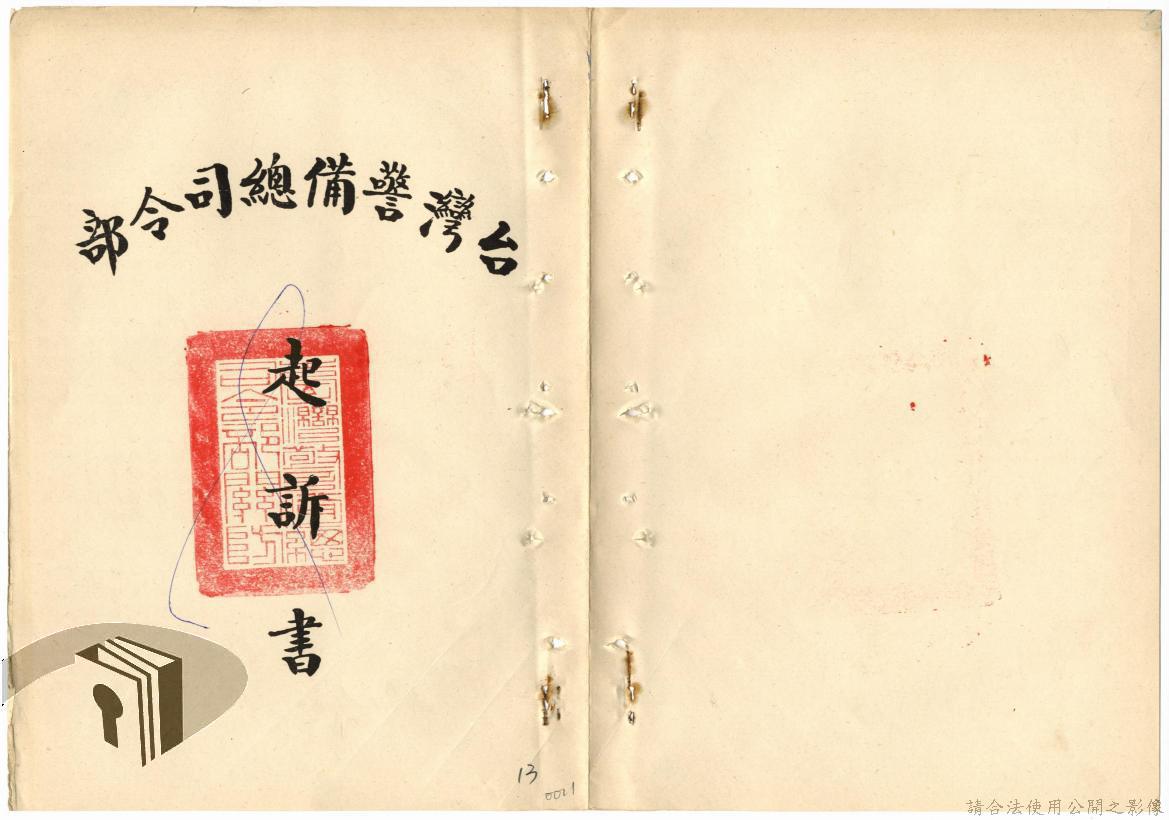 台灣警備總司令部
起訴書
13
0021
請合法使用公開之影像